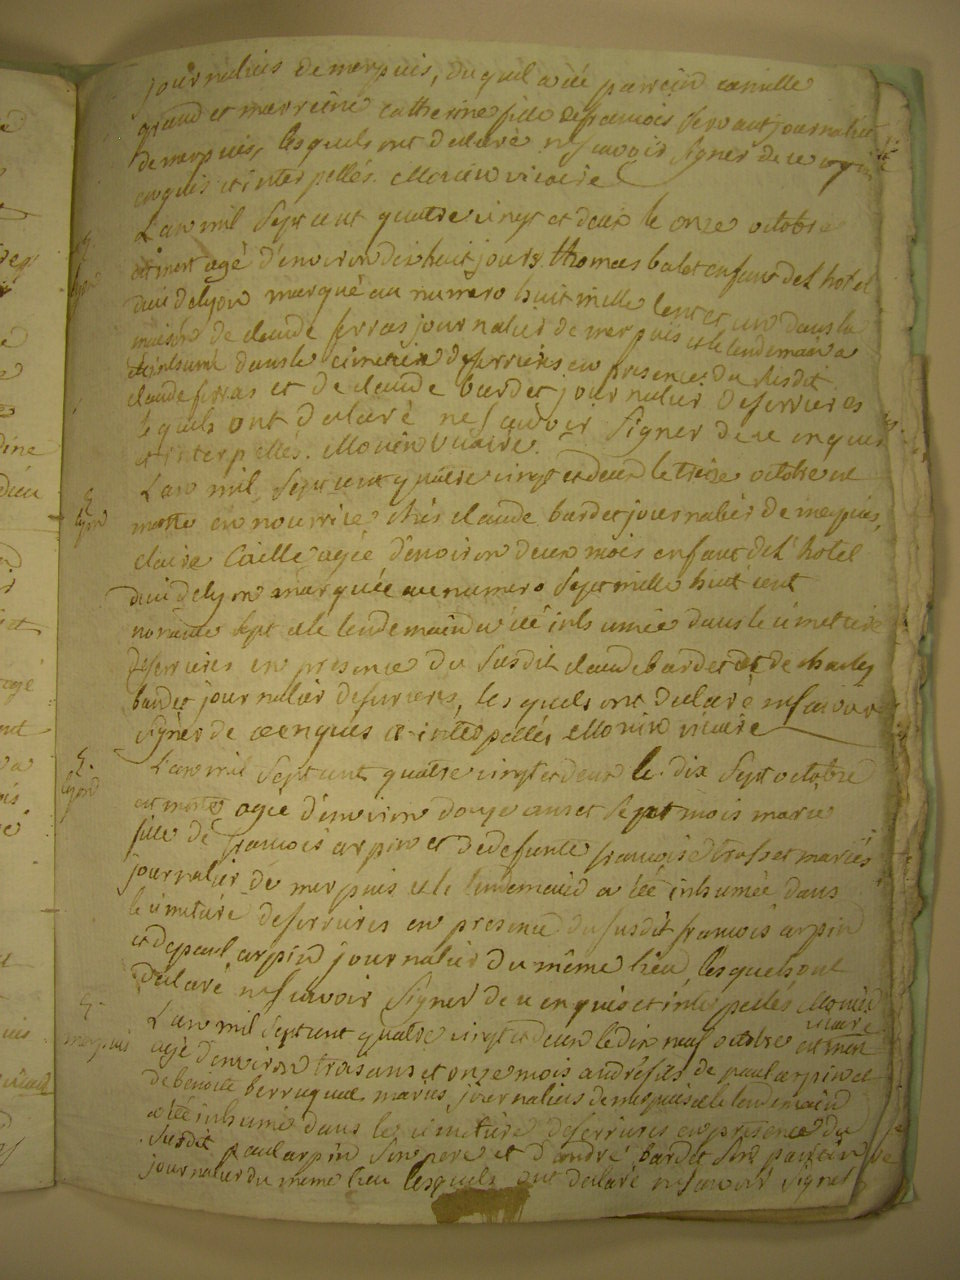 journaliers de merpuis, duquel a été parrein camille
grand et marreine catherine fille de francois servant journalier
de merpuis, lesquels ont declaré ne scavoir signer de ce
enquis et interpellés. Morin vicaire
L'an mil sept cent quatre vingt et deux le onze octobre
est mort agé d'environ dix huit jours thomas balot enfant de l'hotel
dieu de lyon marqué au numero huit mille cent et un dans la
maison de claude ferras journalier de merpuis et le lendemain a
été inhumé dans le cimetiere de ferrieres en presence du susdit
claude ferras et de claude bardet journalier de ferrieres
lesquels ont declaré ne scavoir signer de ce enquis
et interpellés. Morin vicaire.
S.
lyon
L'an mil sept cent quatre vingt et deux le treize octobre est
morte en nourrice chés claude bardet journalier de merpuis,
claire Caille agée d'environ deux mois enfant de l'hotel
dieu de lyon marquée au numero sept mille huit cent
nonante sept et le lendemain a été inhumée dans le cimetiere
de ferrieres en presence du susdit claude bardet et de charles
bardet journalier de ferrieres, lesquels ont declaré ne scavoir
signer de ce enquis et interpellés Morin vicaire
S.
lyon
L'an mil sept cent quatre vingt et deux le dix sept octobre
est morte agée d'environ douze ans et sept mois marie
fille de francois arpin et de defunte francoise mariés
journalier de merpuis et le lendemain a été inhumée dans
le cimetiere de ferrieres en presence du susdit francois arpin
et de paul arpin journalier du même lieu lesquels ont
declaré ne scavoir signer de ce enquis et interpellés Morin
vicaire
S.
merpuis
L'an mil sept cent quatre vingt et deux le dix neuf octobre est mort
agé d'environ trois ans et onze mois andré fils de paul arpin et
de benoite mariés, journaliers de merpuis et le lendemain
a été inhumé dans le cimetiere de ferrieres en presence du
susdit paul arpin son pere et d'andré bardet son parrein
journalier du meme lieu lesquels ont declaré ne scavoir signer